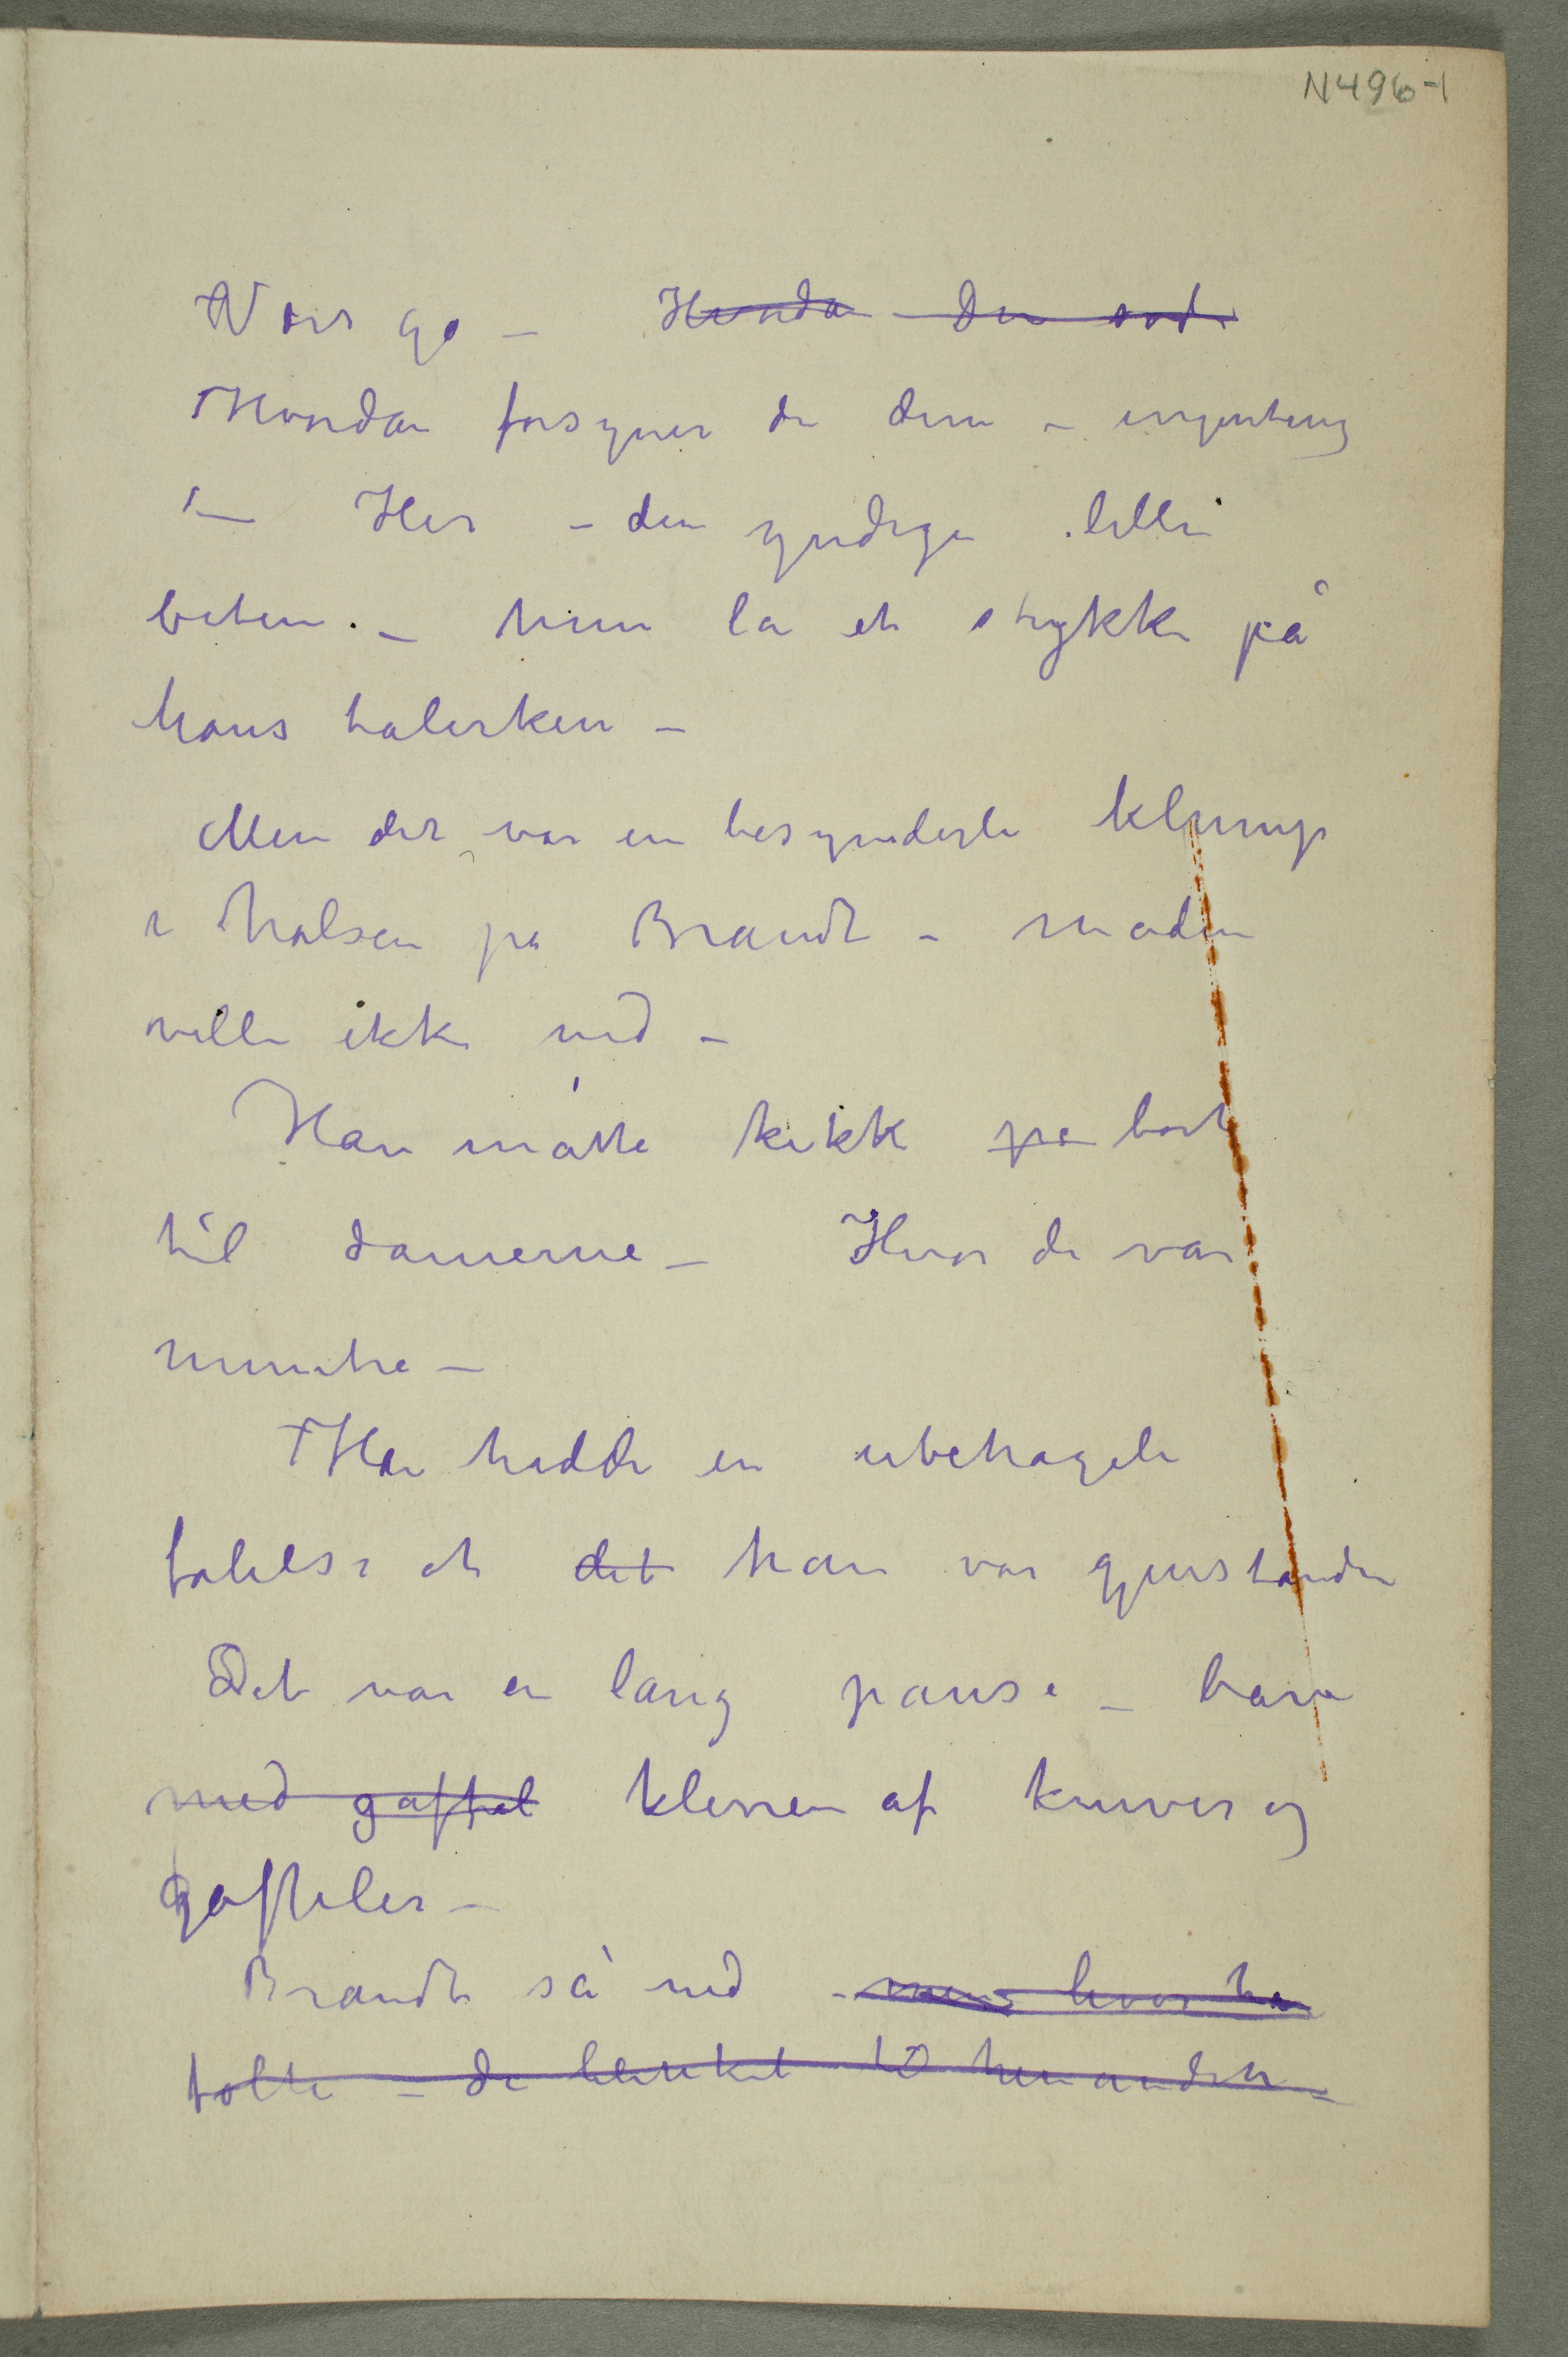 N496-1
Værs go – Hvorda Den sod.
Hvordan forsyner de dem – ingenting
– Her – den yndige lille
biten. – hun la et stykke på
hans talerken –
Men der var en besynderle klump
i halsen på Brandt – maden
ville ikke ned –
Han måtte kikk på bort
til damerne – Hvor de var
muntre –
Han hadde en ubehagele
følelse at det han var gjenstanden
Det var en lang pause – bare
med gaffel klirren af kniver og
gafheler –
Brandt så ned – mens hvor han
følte – de blinket til hverandre –